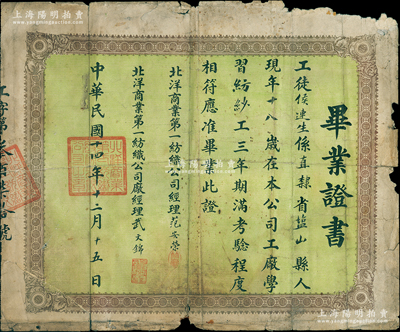 上海陽明拍賣
畢業證書
工徒侯連生係直隸省鹽山縣人
現年十八歲在本公司工廠學
習紡紗工三年期滿考驗程度
相符應准畢業此證
北洋商業第一紡織公司經理范安榮
北洋商業第一紡織公司廠經理武文錦
中華民國十四年十二月十五日
工字第 號